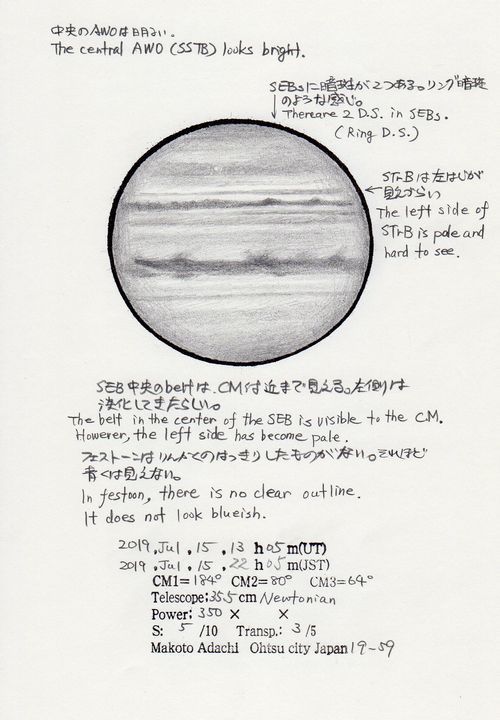 中央のAWOは明るい。
The central AWO (SSTB) looks bright.
SEBsに暗斑が2つある。リング暗斑
のような感じ。
There are 2 D.S. in SEBs.
(Ring D.S.)
STrBは左はじが
見えづらい
The left side of
STrB is pale and
hard to see.
SEB中央のbeltは、CM付近まで見える。左側は
淡化してきたらしい。
The belt in the center of the SEB is visible to the CM.
However, the left side has become pale.
フェストーンはりんかくのはっきりしたものがない。それほど
青くは見えない。
In festoon, there is no clear outline.
It does not look blueish.
2019, Jul, 15, 13 h 05 m(UT)
2019, Jul, 15, 22 h 05 m(JST)
CM1= 184° CM2= 80° CM3= 64°
Telescope: 35.5 cm Newtonian
Power: 350 × ×
S: 5 /10 Transp.: 3 /5
Makoto Adachi Ohtsu city Japan 19-59